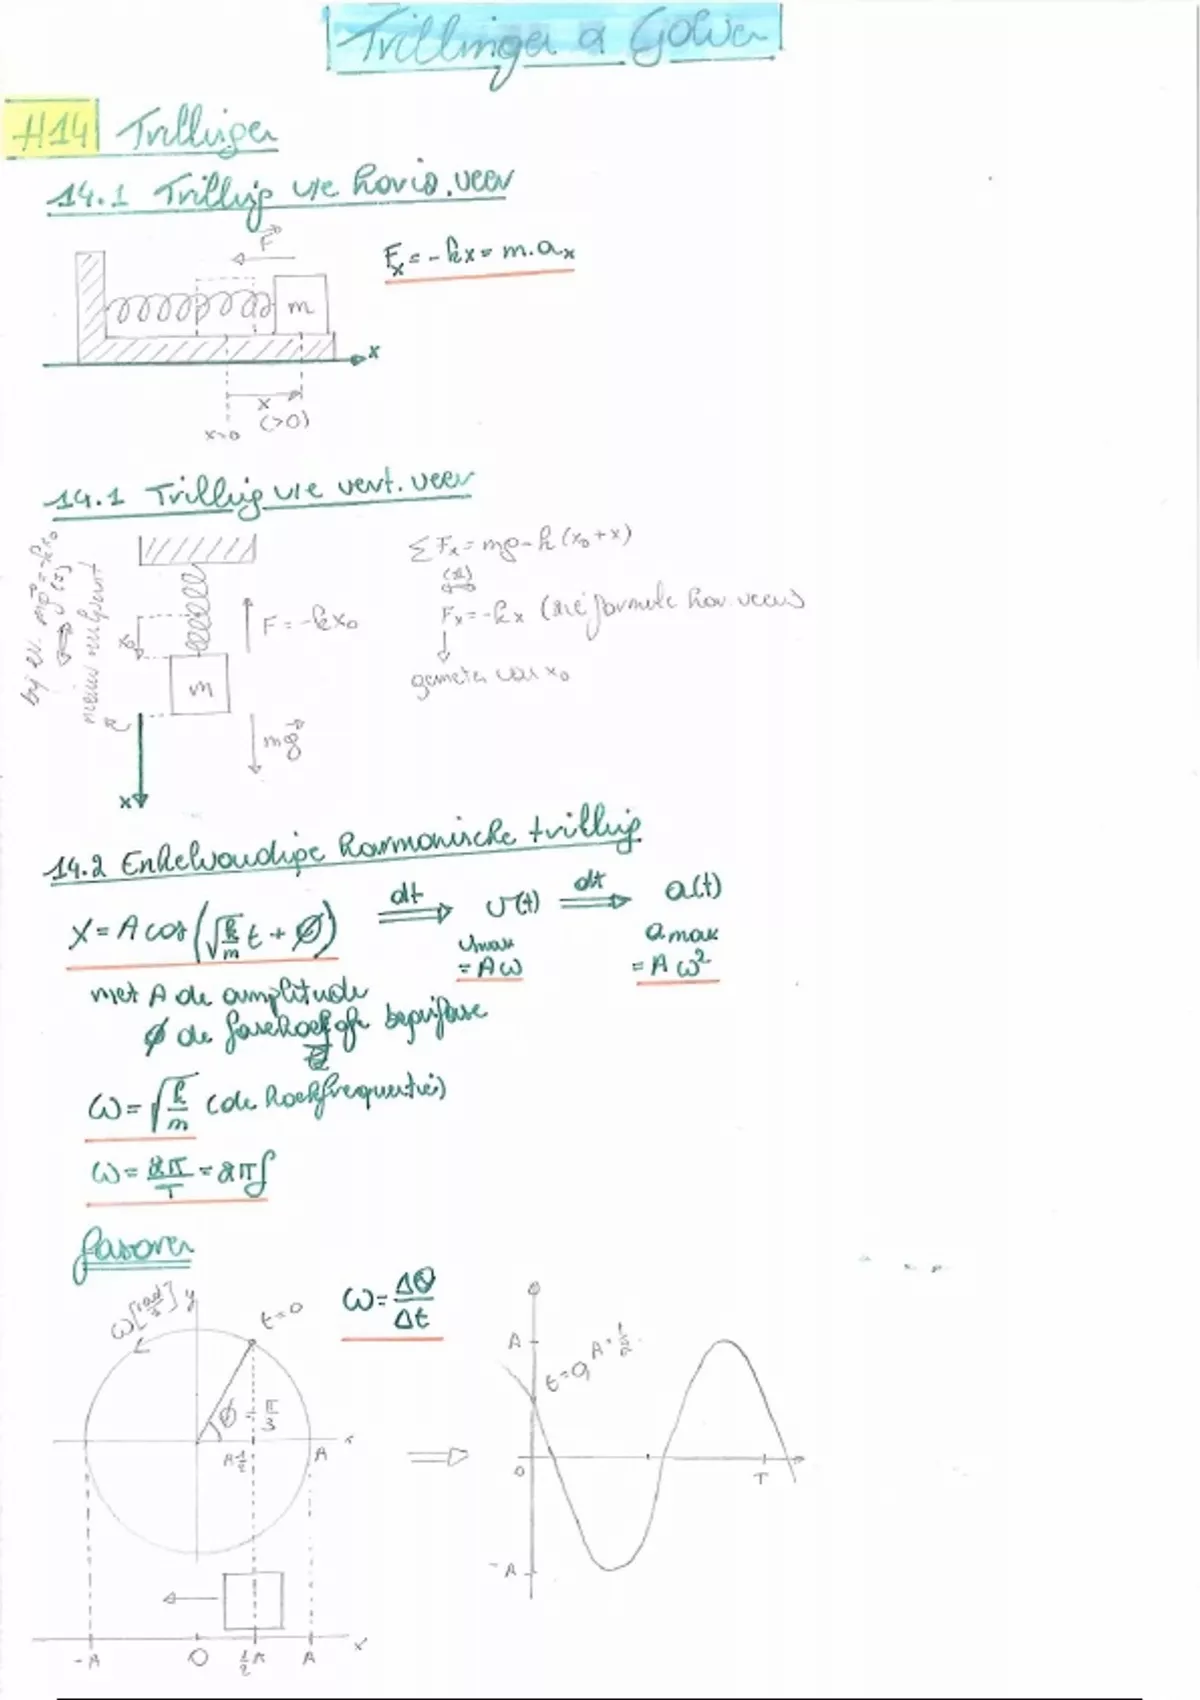 Trillingen & Golven
H14 Trillingen
14.1 Trilling v/e horiz. veer
F
Fx = -kx = m.ax
m
x
x
(>0)
x=0
14.1 Trilling v/e vert. veer
bij ev. mg = -kx0
nieuw
x0
F = -kx0
m
mg
x
ΣFx = mg - k(x0+x)
Fx = -kx (zie formule hor. veer)
gemeten van x0
14.2 Enkelvoudige harmonische trilling
x = A cos(√k/m t + ø) dt ⇒ v(t) dt ⇒ a(t)
vmax = Aω
amax = Aω²
met A de amplitude
ø de fasehoek of beginfase
ω = √k/m (de hoekfrequentie)
ω = 2π/T = 2πf
fasoren
ω [rad/s]
y
t=0
ω = Δθ/Δt
ø = π/3
A 1/2
A
x
A
t=0, A·1/2
0
T
-A
-A 0 1/2 A A x